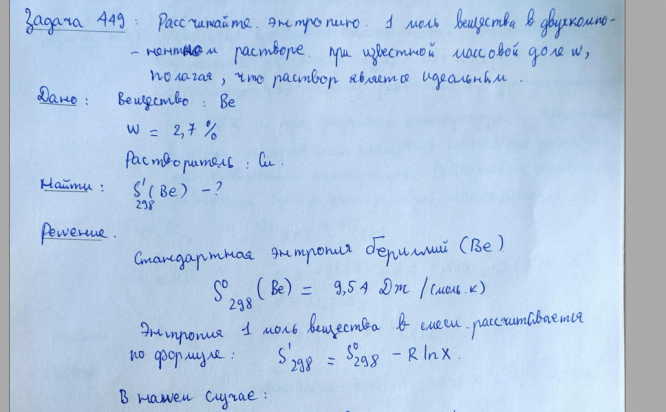 Задача 449: Рассчитайте энтропию 1 моль вещества в двухкомпо-
- нентном растворе при известной массовой доле w,
полагая, что раствор является идеальным.
Дано: Вещество: Be
W = 2,7 %
Растворитель: Cu.
Найти: S'298 (Be) - ?
Решение.
Стандартная энтропия бериллий (Be)
S⁰298 (Be) = 9,54 Дж / (моль.к)
Энтропия 1 моль вещества в смеси рассчитывается
по формуле: S'298 = S⁰298 - R ln X.
В нашем случае: